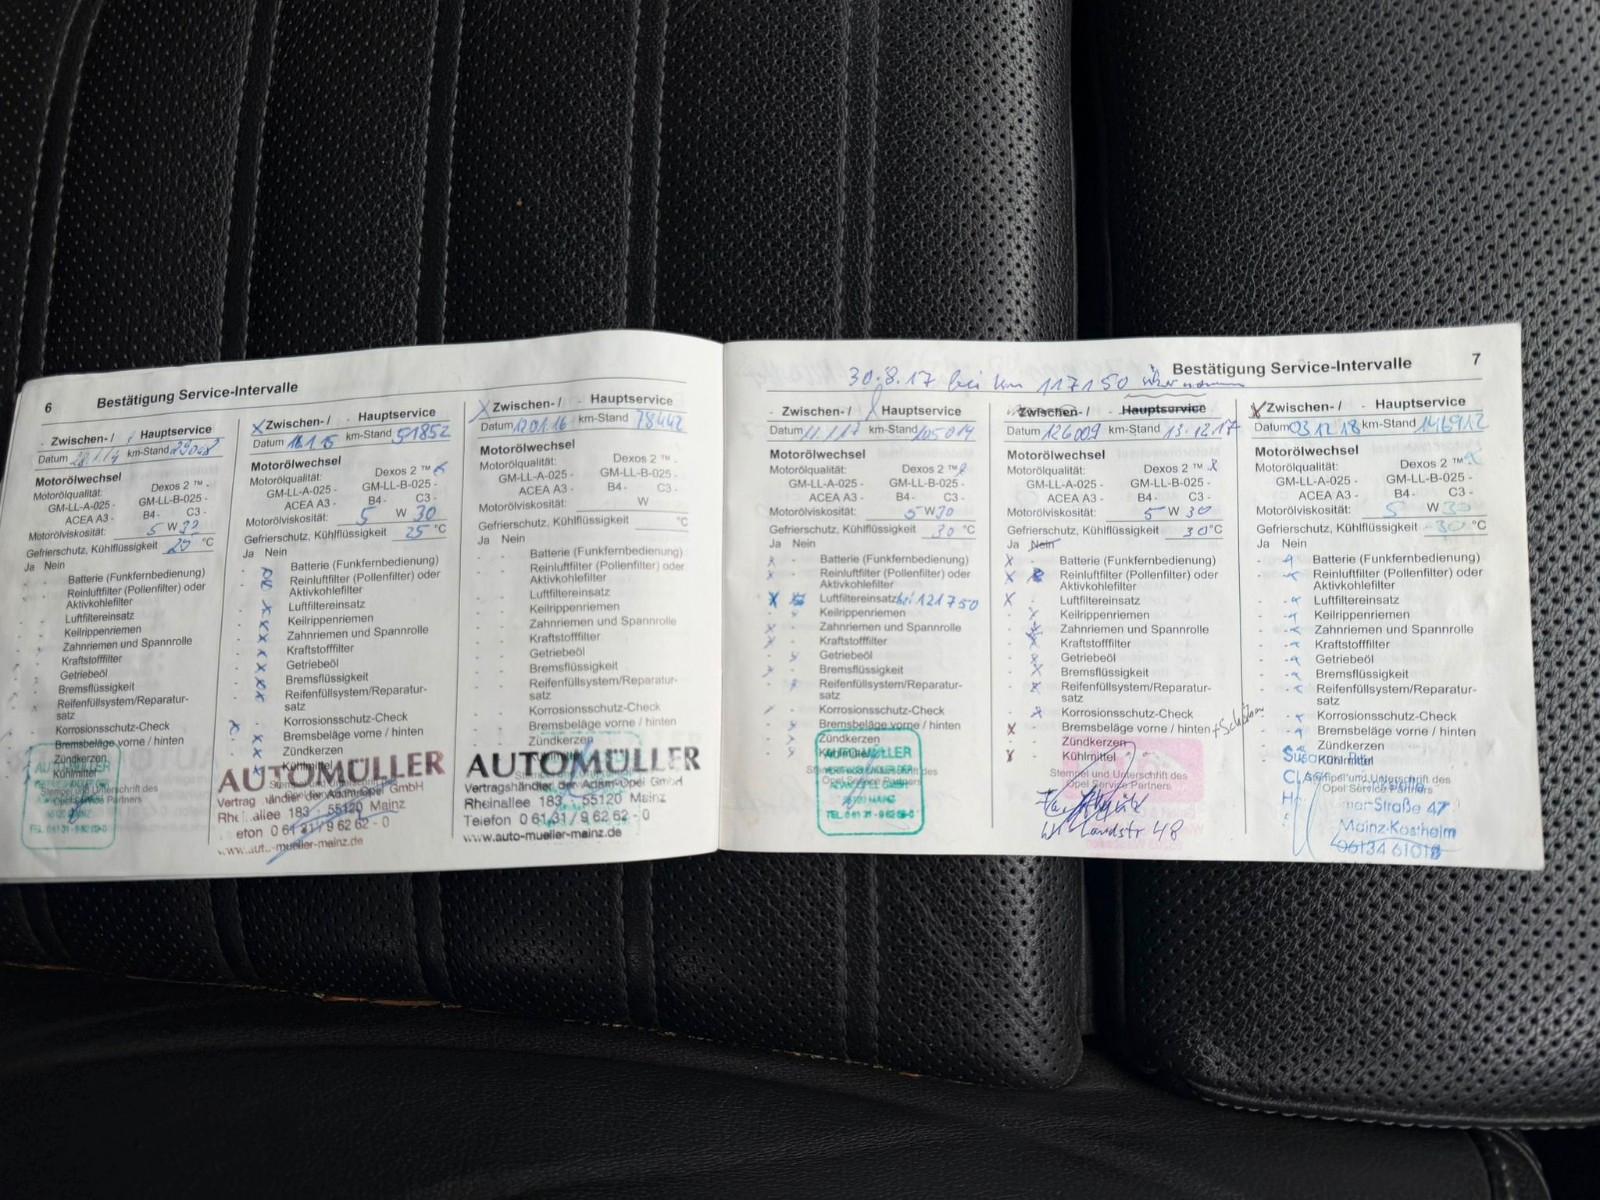 6 Bestätigung Service-Intervalle
- Zwischen-/ Hauptservice
Datum km-Stand
Motorölwechsel
Motorölqualität: Dexos 2 -
GM-LL-A-025 - GM-LL-B-025 -
ACEA A3 - B4- C3 -
Motorölviskosität: 5 W
Gefrierschutz, Kühlflüssigkeit °C
Ja Nein
Batterie (Funkfernbedienung)
Reinluftfilter (Pollenfilter) oder
Aktivkohlefilter
Luftfiltereinsatz
Keilrippenriemen
Zahnriemen und Spannrolle
Kraftstofffilter
Getriebeöl
Bremsflüssigkeit
Reifenfüllsystem/Reparatur-
satz
Korrosionsschutz-Check
Bremsbeläge vorne / hinten
Zündkerzen
Kühlmittel
X Zwischen-/ - Hauptservice
Datum km-Stand 51852
Motorölwechsel
Motorölqualität: Dexos 2 ™
GM-LL-A-025 - GM-LL-B-025 -
ACEA A3 - B4- C3 -
Motorölviskosität: 5 W 30
Gefrierschutz, Kühlflüssigkeit 25 °C
Ja Nein
Batterie (Funkfernbedienung)
Reinluftfilter (Pollenfilter) oder
Aktivkohlefilter
Luftfiltereinsatz
Keilrippenriemen
Zahnriemen und Spannrolle
Kraftstofffilter
Getriebeöl
Bremsflüssigkeit
Reifenfüllsystem/Reparatur-
satz
Korrosionsschutz-Check
Bremsbeläge vorne / hinten
Zündkerzen
Kühlmittel
AUTOMÜLLER
Vertrag händler der Adam-Opel GmbH
allee 183 · 55120 Mainz
efon 0 61 31 / 9 62 62 - 0
X Zwischen-/ - Hauptservice
Datum km-Stand 78442
Motorölwechsel
Motorölqualität: Dexos 2 ™ -
GM-LL-A-025 - GM-LL-B-025 -
ACEA A3 - B4- C3 -
Motorölviskosität: W
Gefrierschutz, Kühlflüssigkeit °C
Ja Nein
Batterie (Funkfernbedienung)
Reinluftfilter (Pollenfilter) oder
Aktivkohlefilter
Luftfiltereinsatz
Keilrippenriemen
Zahnriemen und Spannrolle
Kraftstofffilter
Getriebeöl
Bremsflüssigkeit
Reifenfüllsystem/Reparatur-
satz
Korrosionsschutz-Check
Bremsbeläge vorne / hinten
Zündkerzen
AUTOMÜLLER
Vertragshändler der Adam-Opel GmbH
Rheinallee 183 · 55120 Mainz
Telefon 0 61 31 / 9 62 62 - 0
www.auto-mueller-mainz.de
Bestätigung Service-Intervalle 7
30.8.17 bei km 117150
- Zwischen-/ Hauptservice
Datum 11.1.17 km-Stand 105014
Motorölwechsel
Motorölqualität: Dexos 2 ™
GM-LL-A-025 - GM-LL-B-025 -
ACEA A3 - B4- C3 -
Motorölviskosität: 5 W 30
Gefrierschutz, Kühlflüssigkeit 30 °C
Ja Nein
Batterie (Funkfernbedienung)
Reinluftfilter (Pollenfilter) oder
Aktivkohlefilter
Luftfiltereinsatz bei 121750
Keilrippenriemen
Zahnriemen und Spannrolle
Kraftstofffilter
Getriebeöl
Bremsflüssigkeit
Reifenfüllsystem/Reparatur-
satz
Korrosionsschutz-Check
Bremsbeläge vorne / hinten
Zündkerzen
Kühlmittel
AUTOMÜLLER
Zwischen-/ - Hauptservice
Datum 126009 km-Stand 13.12.17
Motorölwechsel
Motorölqualität: Dexos 2 ™
GM-LL-A-025 - GM-LL-B-025 -
ACEA A3 - B4- C3 -
Motorölviskosität: 5 W 30
Gefrierschutz, Kühlflüssigkeit 30 °C
Ja Nein
Batterie (Funkfernbedienung)
Reinluftfilter (Pollenfilter) oder
Aktivkohlefilter
Luftfiltereinsatz
Keilrippenriemen
Zahnriemen und Spannrolle
Kraftstofffilter
Getriebeöl
Bremsflüssigkeit
Reifenfüllsystem/Reparatur-
satz
Korrosionsschutz-Check
Bremsbeläge vorne / hinten
Zündkerzen
Kühlmittel
Stempel und Unterschrift des
Opel Service Partners
Landstr 48
X Zwischen-/ - Hauptservice
Datum 03 12 18 km-Stand 146912
Motorölwechsel
Motorölqualität: Dexos 2 ™
GM-LL-A-025 - GM-LL-B-025 -
ACEA A3 - B4- C3 -
Motorölviskosität: 5 W 30
Gefrierschutz, Kühlflüssigkeit -30 °C
Ja Nein
Batterie (Funkfernbedienung)
Reinluftfilter (Pollenfilter) oder
Aktivkohlefilter
Luftfiltereinsatz
Keilrippenriemen
Zahnriemen und Spannrolle
Kraftstofffilter
Getriebeöl
Bremsflüssigkeit
Reifenfüllsystem/Reparatur-
satz
Korrosionsschutz-Check
Bremsbeläge vorne / hinten
Zündkerzen
Kühlmittel
Opel Service Partners
Straße 47
Mainz-Kostheim